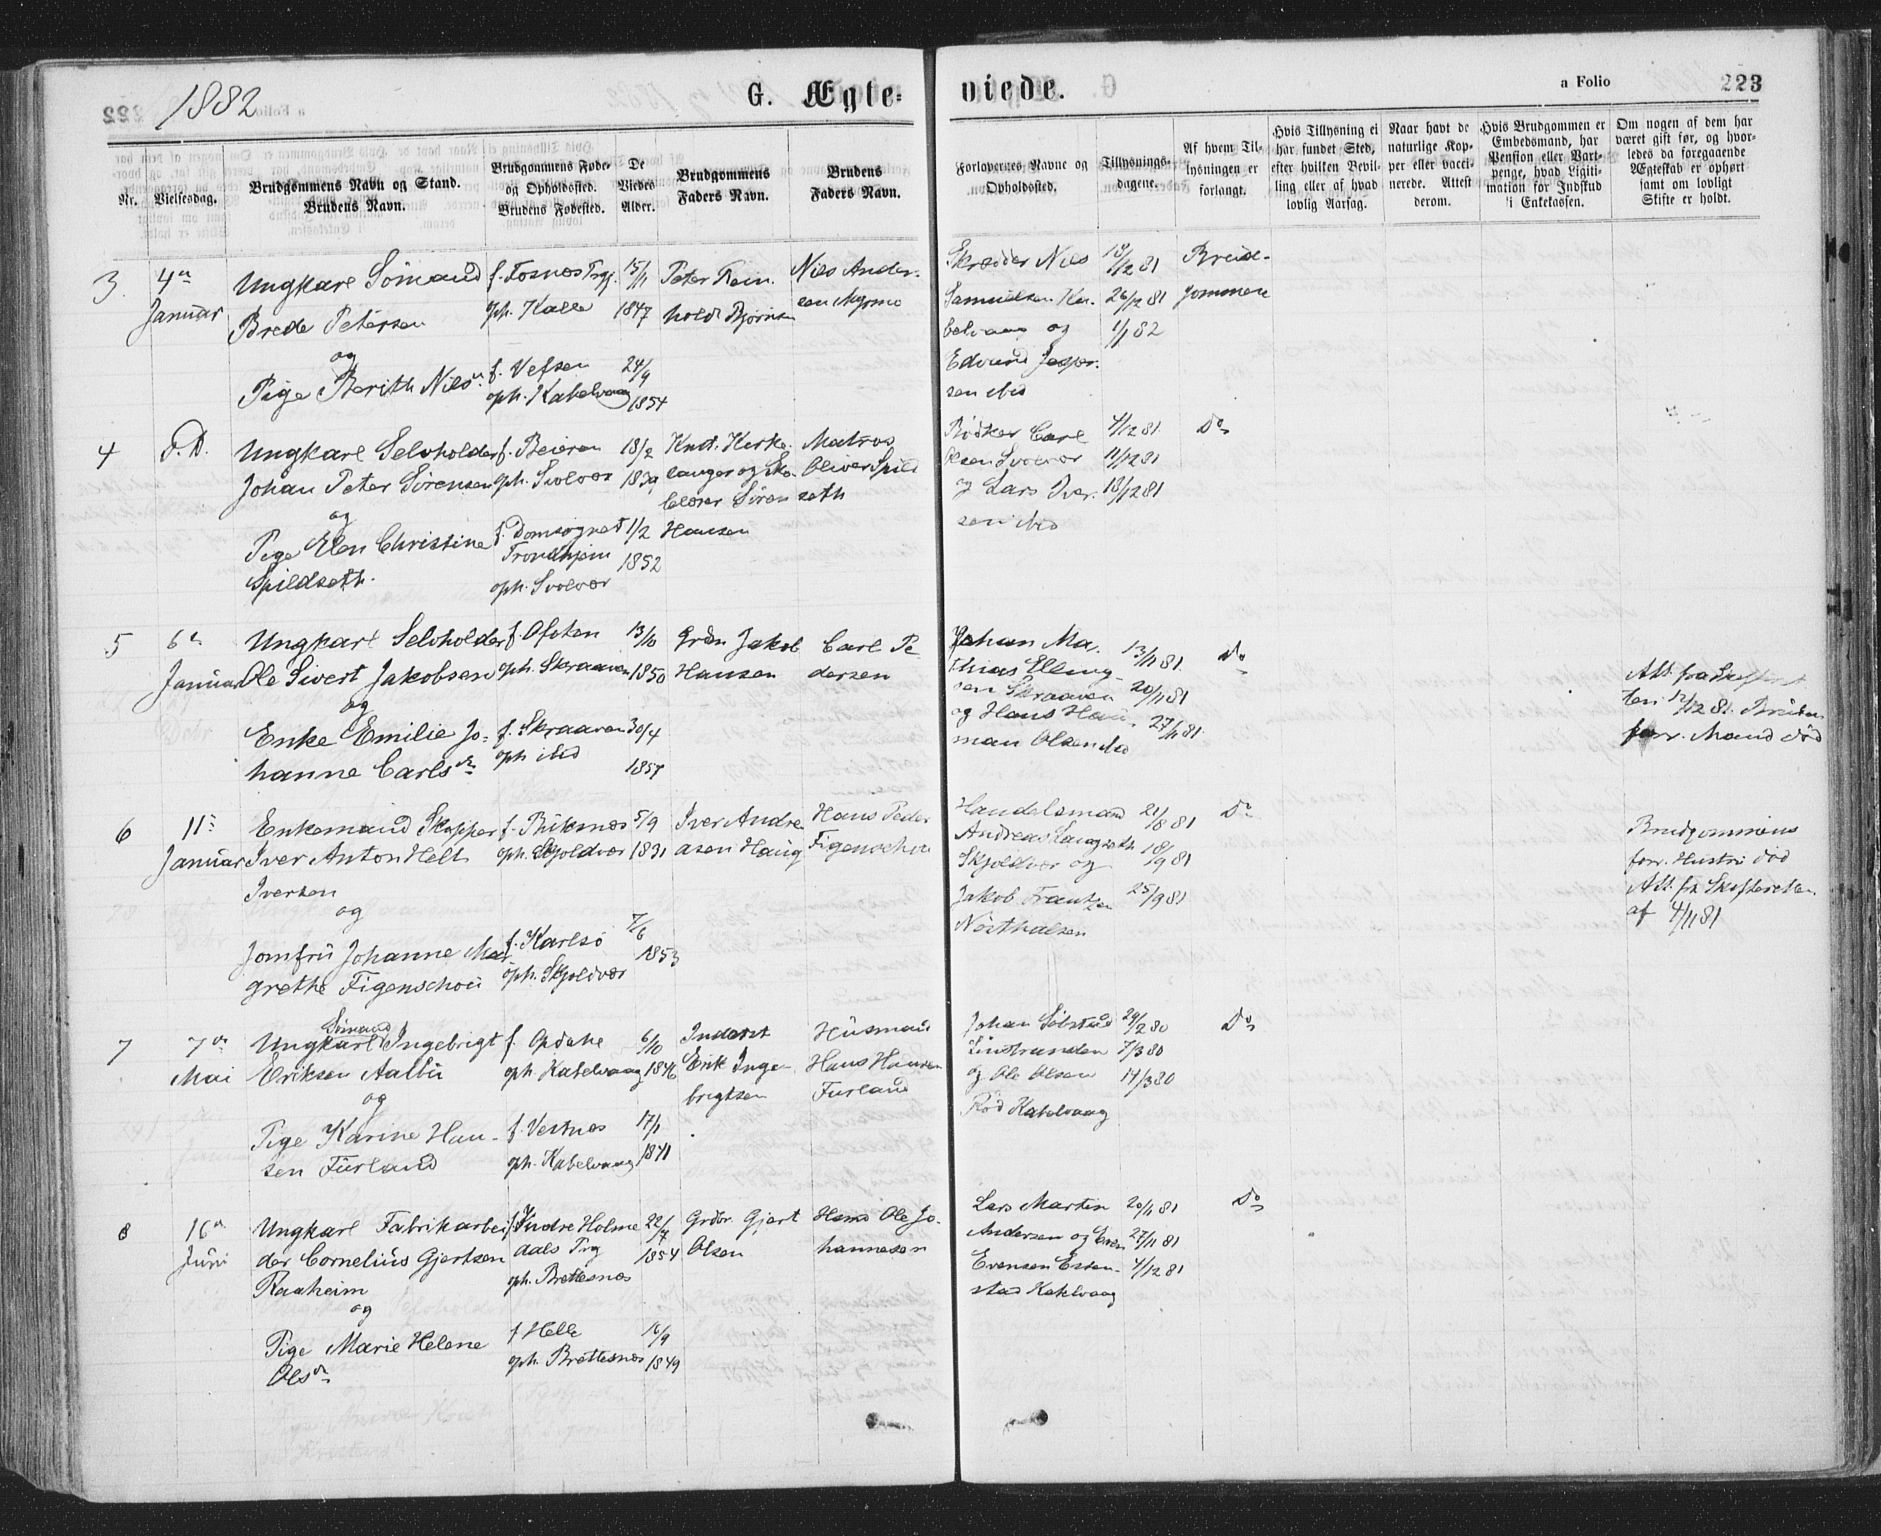 1882
G. Ægte-
viede.
a Folio
223
Nr.
Vielsesdag.
Brudgommens Navn og Stand.
Brudens Navn.
Brudgommens Føde-
og Opholdssted.
Brudens Fødested.
De
Viedes
Alder.
Brudgommens
Faders Navn.
Brudens
Faders Navn.
Forlovernes Navne og
Opholdssted.
Tillysnings-
dagene.
Af hvem Til-
lysningen er
forlangt.
Hvis Tillysning ei
har fundet Sted,
efter hvilken Bevil-
ling eller af hvad
lovlig Aarsag.
Naar havt de
naturlige Kop-
per eller vacci-
nerede. Attest
derom.
Hvis Brudgommen er
Embedsmand, har
Pension eller Vart-
penge, hvad Ligiti-
mation for Indskud
i Enkekassen.
Om nogen af dem har
været gift før, og hvor-
ledes da foregaaende
Ægteskab er ophørt
samt om lovligt
Skifte er holdt.
3.
4de
Januar
Ungkarl Sømand
Brede Petersen
og
Pige Berith Nilsd.
f. Fosnes Prgj.
oph. Kalle
f. Vefsen
oph. Kabelvaag
15/11
1847
24/9
1854
Peter Rein-
hold Bjørnsen
Nils Ander-
sen Myrmo
Skrædder Nils
Samuelsen Ka-
belvaag og
Edvard Jesper-
sen ibid
18/12 81
26/12 81
1/1 82
Brud-
gommen
4
d. D.
Ungkarl Selvholder
Johan Peter Sørensen
og
Pige Elen Christine
Spildseth.
f. Beieren
oph. Svolvær
f. Domsognet
Trondhjem
oph. Svolvær
18/2
1839
1/2
1852
Knt. Kirke-
sanger og Sko-
lelærer Søren
Hansen
Matros
Oliver Spild
seth
Bødker Carl
Olsen Svolvær
og Lars Iver-
sen ibid
4/12 81
11/12 81
18/12 81
Do
5
6te
Januar
Ungkarl Selvholder
Ole Sivert Jakobsen
og
Enke Emilie Jo-
hanne Carlsdn
f. Ofoten
oph. Skraaven
f. Skraaven
oph ibid
13/10
1850
30/4
1857
Grdm Jakob
Hansen
Carl Pe-
dersen
Johan Ma-
thias Elling-
sen Skraaven
og Hans Hau-
man Olsen ibid
13/11 81.
20/11 81
27/11 81
Do
Att. fra Skifteret
ten 12/12 81. Brudens
forr. Mand død
6
11te
Januar
Enkemand Skipper
Iver Anton Helt
Iversen
og
Jomfru Johanne Mar
grethe Figenschou
f. Buksnæs
oph. Skjoldvær
f. Karlsø
oph. Skjoldvær
5/9
1831
7/6
1853
Iver Andre-
asen Haug
Hans Peder
Figenschou
Handelsmand
Andreas Langseth
Skjoldvær og
Jakob Frantzen
21/8 81
18/9 81
25/9 81
Do
Brudgommens
forr. Hustru død
Att. fra Skifteretten
af 4/11 81
7
7de
Mai
Sømand
Ungkarl Ingebrigt
Eriksen Aalbu
og
Pige Karine Han-
sen Furland
f. Opdahl
oph. Kabelvaag
f. Vestnæs
oph. Kabelvaag
6/10
1846
17/1
1841
Inderst
Erik Inge-
brigtsen
Husmand
Hans Hansen
Furland
Johan Sibstad
og Ole Olsen
Rød Kabelvaag
29/2 80
7/3 80
14/3 80
Do
8
16de
Juni
Ungkarl Fabrikarbei
der Cornelius Gjertsen
Raaheim
og
Pige Marie Helene
Olsdn
f. Indre Holme
dals Prg
oph. Brettesnæs
f Helle
oph. Brettesnæs
22/7
1854
16/9
1849
Grdbr. Gjert
Olsen
Hsmd Ole Jo-
hannesen
Lars Martin
Andersen og Even
Evensen Essen-
stad Kabelvaag
20/11 81
27/11 81
4/12 81
Do